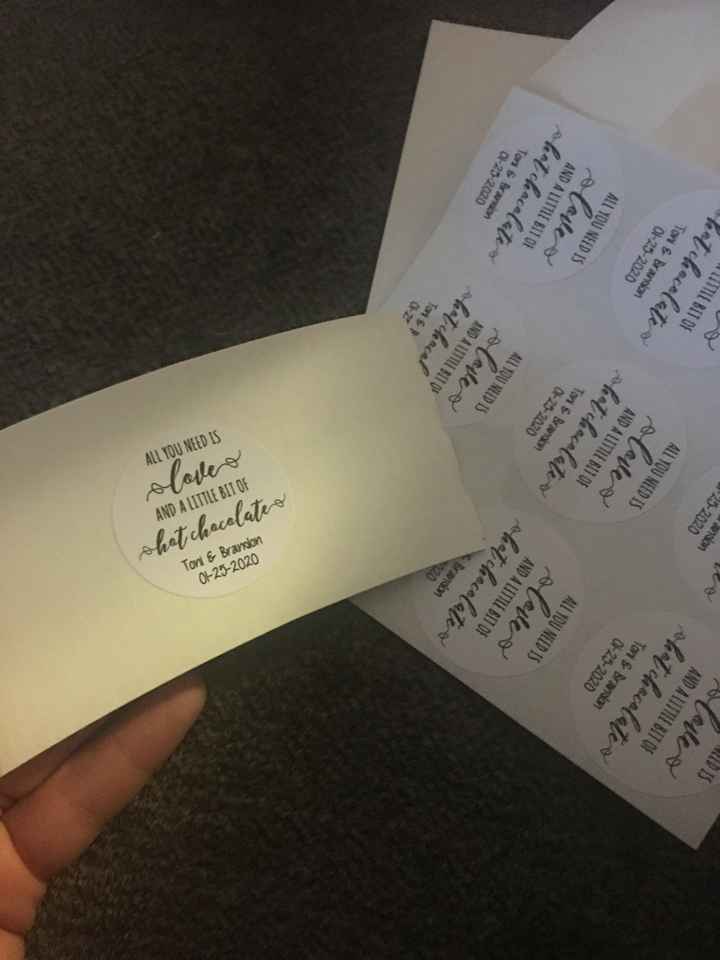 ALL YOU NEED IS
love
AND A LITTLE BIT OF
hot chocolate
Toni & Brandon
01-25-2020
ALL YOU NEED IS
love
AND A LITTLE BIT OF
hot chocolate
Toni & Brandon
01-25-2020
AND A LITTLE BIT OF
hot chocolate
Toni & Brandon
01-25-2020
ALL YOU NEED IS
love
AND A LITTLE BIT OF
hot chocolate
Toni &
ALL YOU NEED IS
love
AND A LITTLE BIT OF
hot chocolate
Toni & Brandon
01-25-2020
ALL YOU NEED IS
love
AND A LITTLE BIT OF
hot chocolate
NEED IS
love
AND A LITTLE BIT OF
hot chocolate
Toni & Brandon
01-25-2020